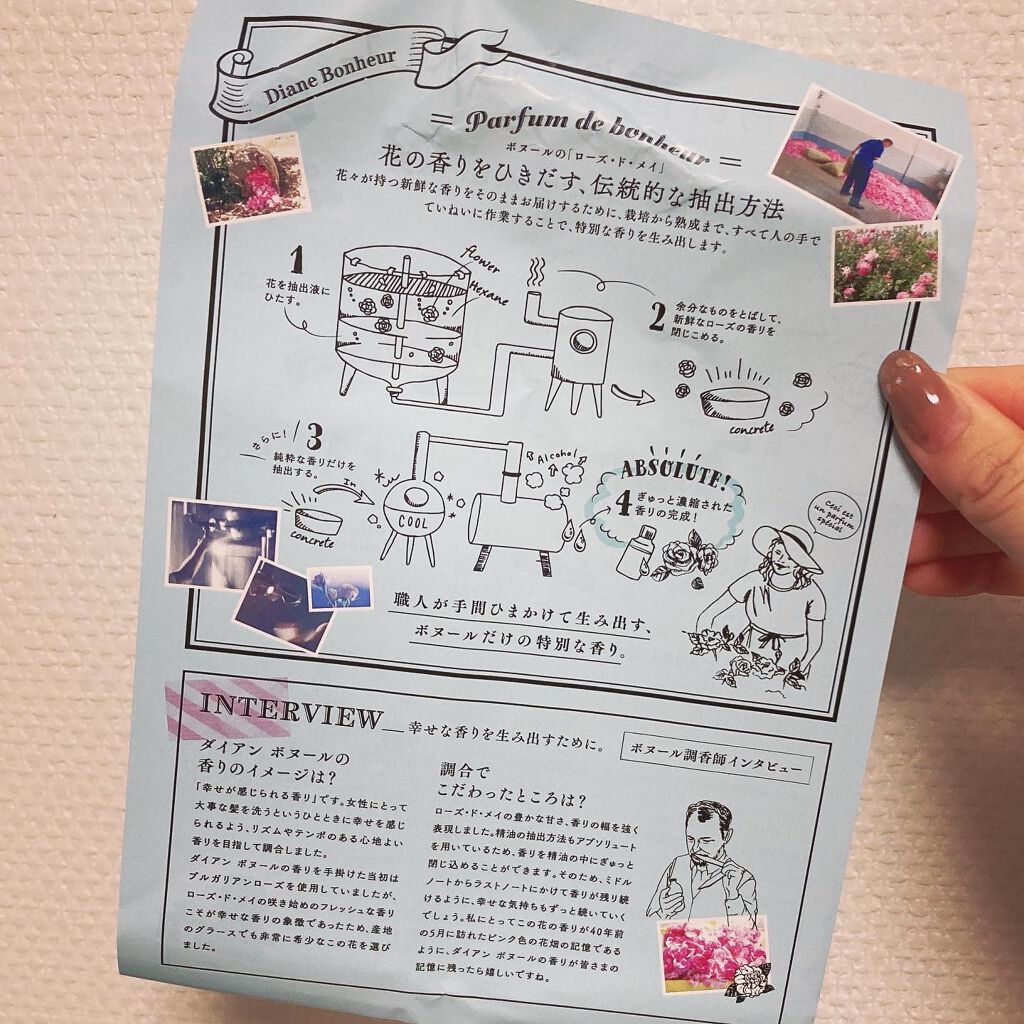 Diane Bonheur
Parfum de bonheur
ボヌールの「ローズ・ド・メイ」
花の香りをひきだす、伝統的な抽出方法
花々が持つ新鮮な香りをそのままお届けするために、栽培から熟成まで、すべて人の手で
ていねいに作業することで、特別な香りを生み出します。
1
花を抽出液に
ひたす。
flower
Hexane
2
余分なものをとばして、
新鮮なローズの香りを
閉じこめる。
concrete
さらに!
3
純粋な香りだけを
抽出する。
In
concrete
COOL
Alcohol
ABSOLUTE!
4
ぎゅっと濃縮された
香りの完成!
Ceci est
un parfum
spécial
職人が手間ひまかけて生み出す、
ボヌールだけの特別な香り。
INTERVIEW
幸せな香りを生み出すために。
ボヌール調香師インタビュー
ダイアン ボヌールの
香りのイメージは?
「幸せが感じられる香り」です。女性にとって
大事な髪を洗うというひとときに幸せを感じ
られるよう、リズムやテンポのある心地よい
香りを目指して調合しました。
ダイアン ボヌールの香りを手掛けた当初は
ブルガリアンローズを使用していましたが、
ローズ・ド・メイの咲き始めのフレッシュな香り
こそが幸せな香りの象徴であったため、産地
のグラースでも非常に希少なこの花を選び
ました。
調合で
こだわったところは?
ローズ・ド・メイの豊かな甘さ、香りの幅を強く
表現しました。精油の抽出方法もアブソリュート
を用いているため、香りを精油の中にぎゅっと
閉じ込めることができます。そのため、ミドル
ノートからラストノートにかけて香りが残り続
けるように、幸せな気持ちもずっと続いていく
でしょう。私にとってこの花の香りが40年前
の5月に訪れたピンク色の花畑の記憶である
ように、ダイアン ボヌールの香りが皆さまの
記憶に残ったら嬉しいですね。